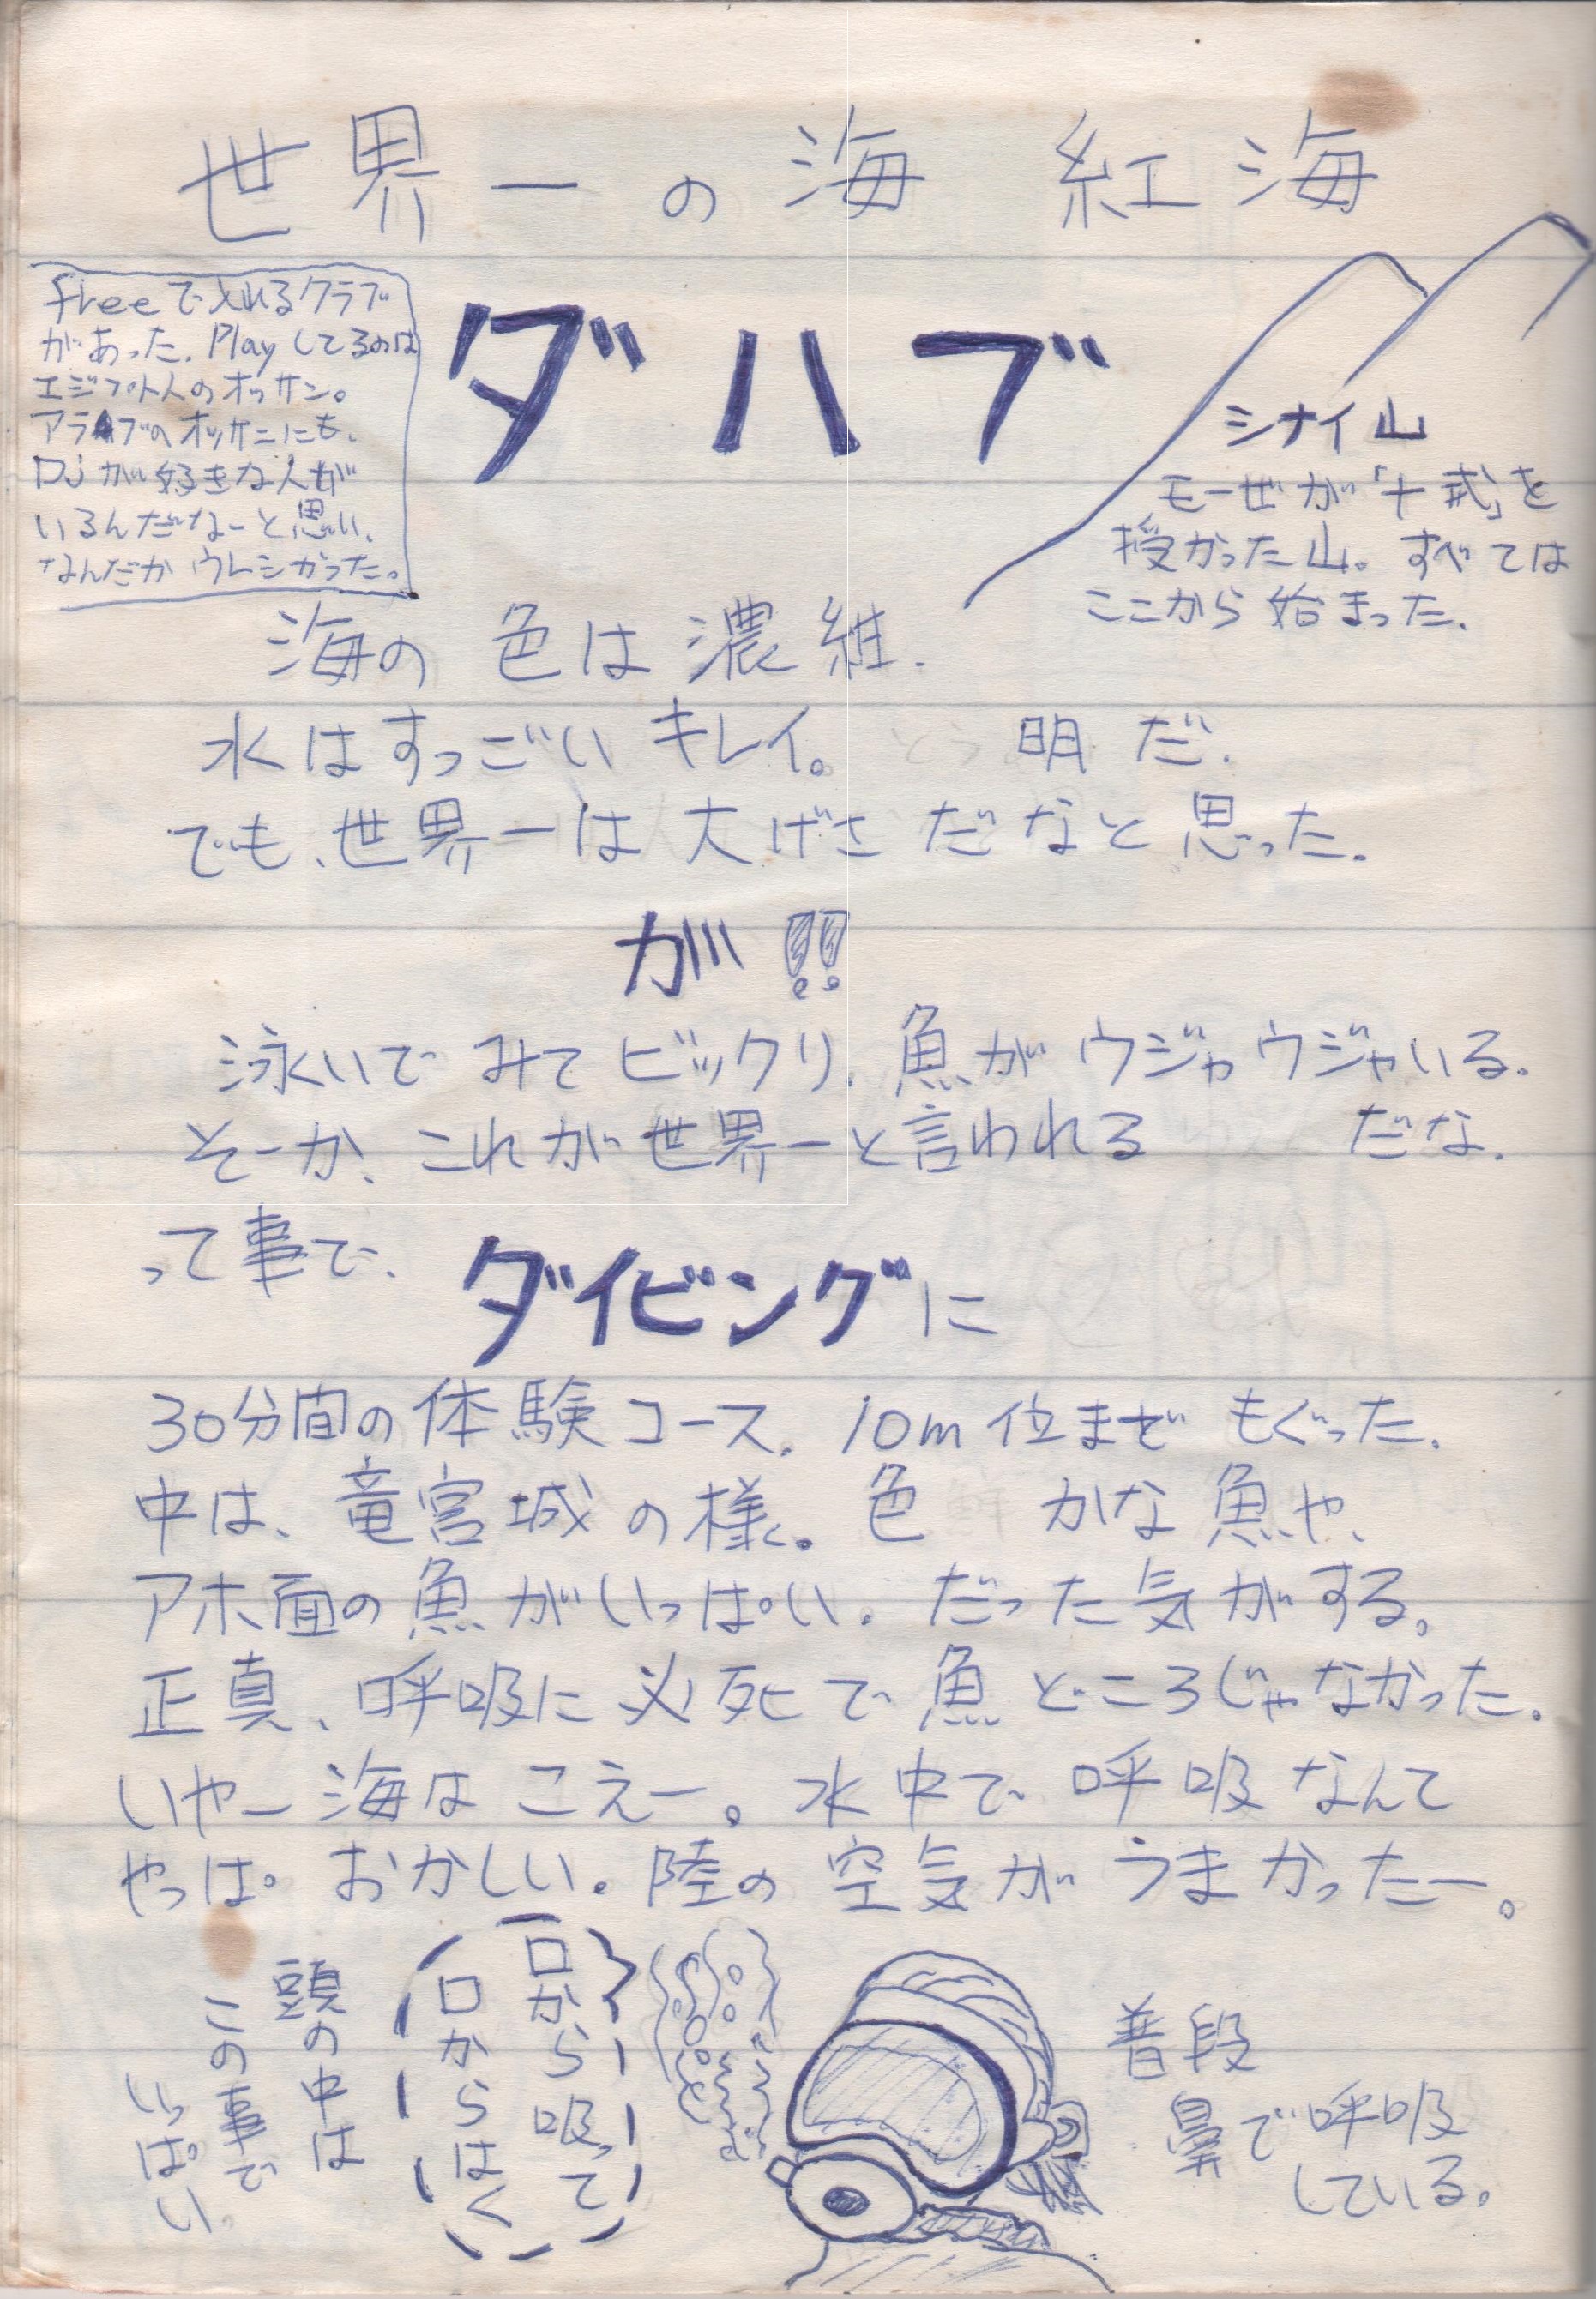 世界一の海 紅海
ダハブ
freeで入れるクラブ
があった。Playしてるのは
エジプト人のオッサン。
アラブのオッサンにも、
DJが好きな人が
いるんだなーと思い、
なんだかウレシかった。
シナイ山
モーゼが「十戒」を
授かった山。すべては
ここから始まった。
海の色は濃紺.
水はすっごいキレイ。とう明だ.
でも、世界一は大げさだなと思った.
が!!
泳いでみてビックリ.魚がウジャウジャいる.
そーか、これが世界一と言われる だな.
って事で、
ダイビングに
30分間の体験コース.10m位までもぐった.
中は、竜宮城の様。色 かな魚や、
アホ面の魚がいっぱい.だった気がする。
正真、呼吸に必死で魚どころじゃなかった。
いやー海はこえー。水中で呼吸なんて
やっぱ。おかしい。陸の空気がうまかったー。
普段
鼻で呼吸
している。
口から吸って
口からはく
頭の中は
この事で
いっぱい。